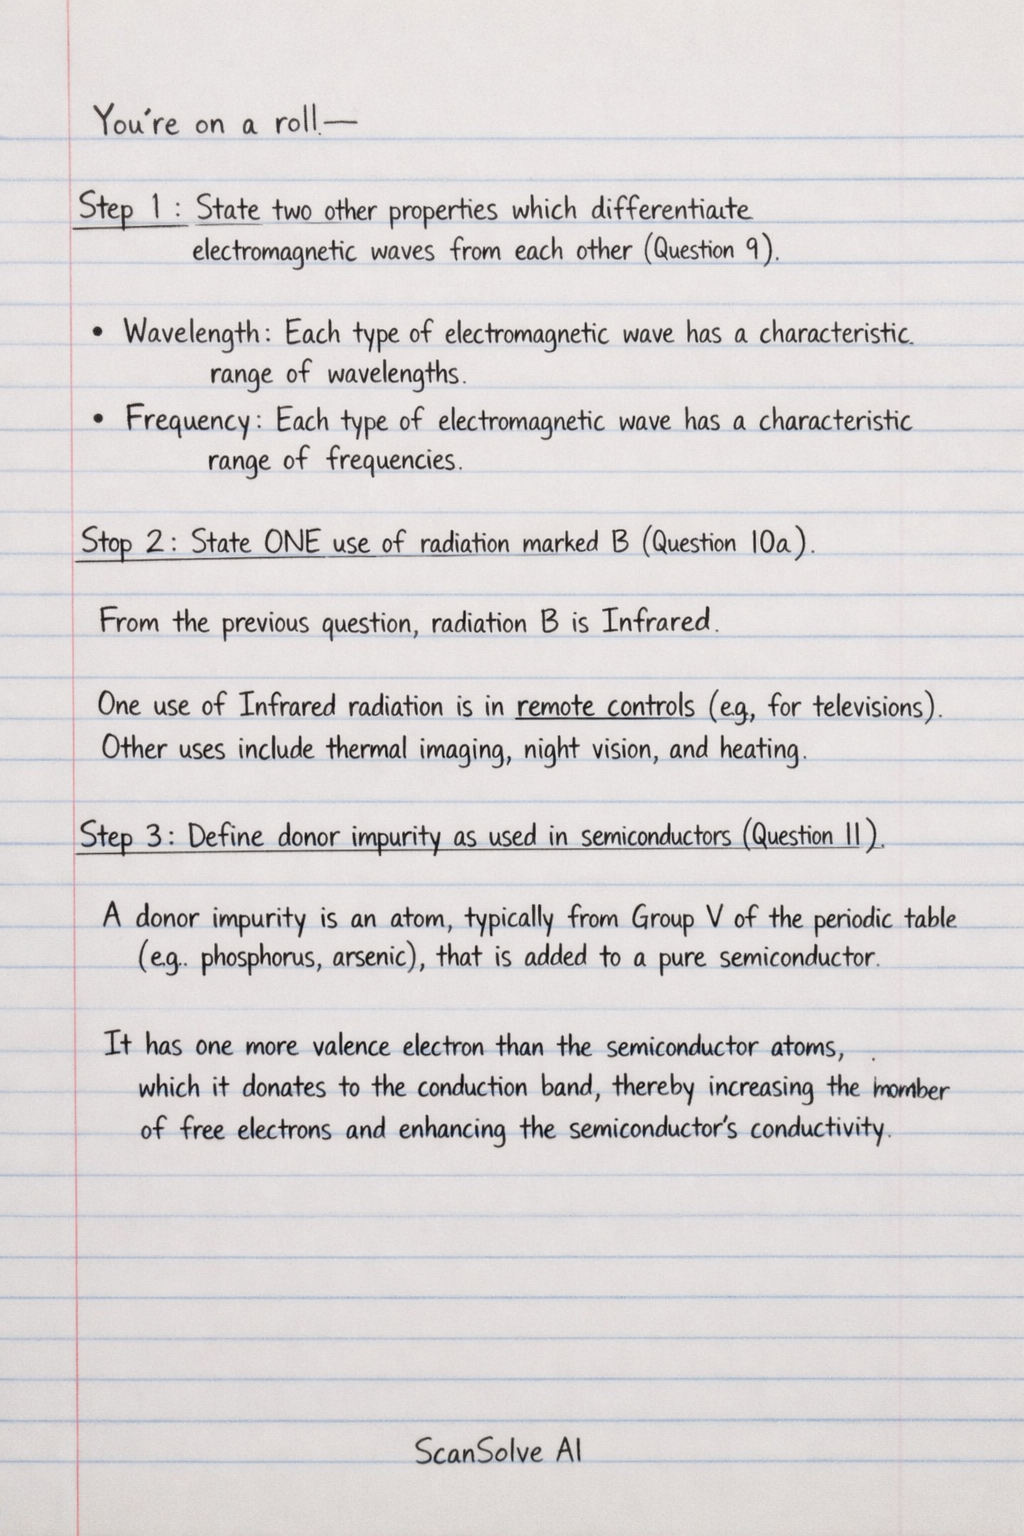 You're on a roll.—
Step 1 : State two other properties which differentiate
electromagnetic waves from each other (Question 9).
• Wavelength: Each type of electromagnetic wave has a characteristic.
range of wavelengths.
• Frequency: Each type of electromagnetic wave has a characteristic
range of frequencies.
Stop 2: State ONE use of radiation marked B (Question 10a).
From the previous question, radiation B is Infrared.
One use of Infrared radiation is in remote controls (e.g, for televisions).
Other uses include thermal imaging, night vision, and heating.
Step 3: Define donor impurity as used in semiconductors (Question 11).
A donor impurity is an atom, typically from Group V of the periodic table
(e.g.. phosphorus, arsenic), that is added to a pure semiconductor.
It has one more valence electron than the semiconductor atoms,
which it donates to the conduction band, thereby increasing the
of free electrons and enhancing the semiconductor's conductivity.
ScanSolve AI